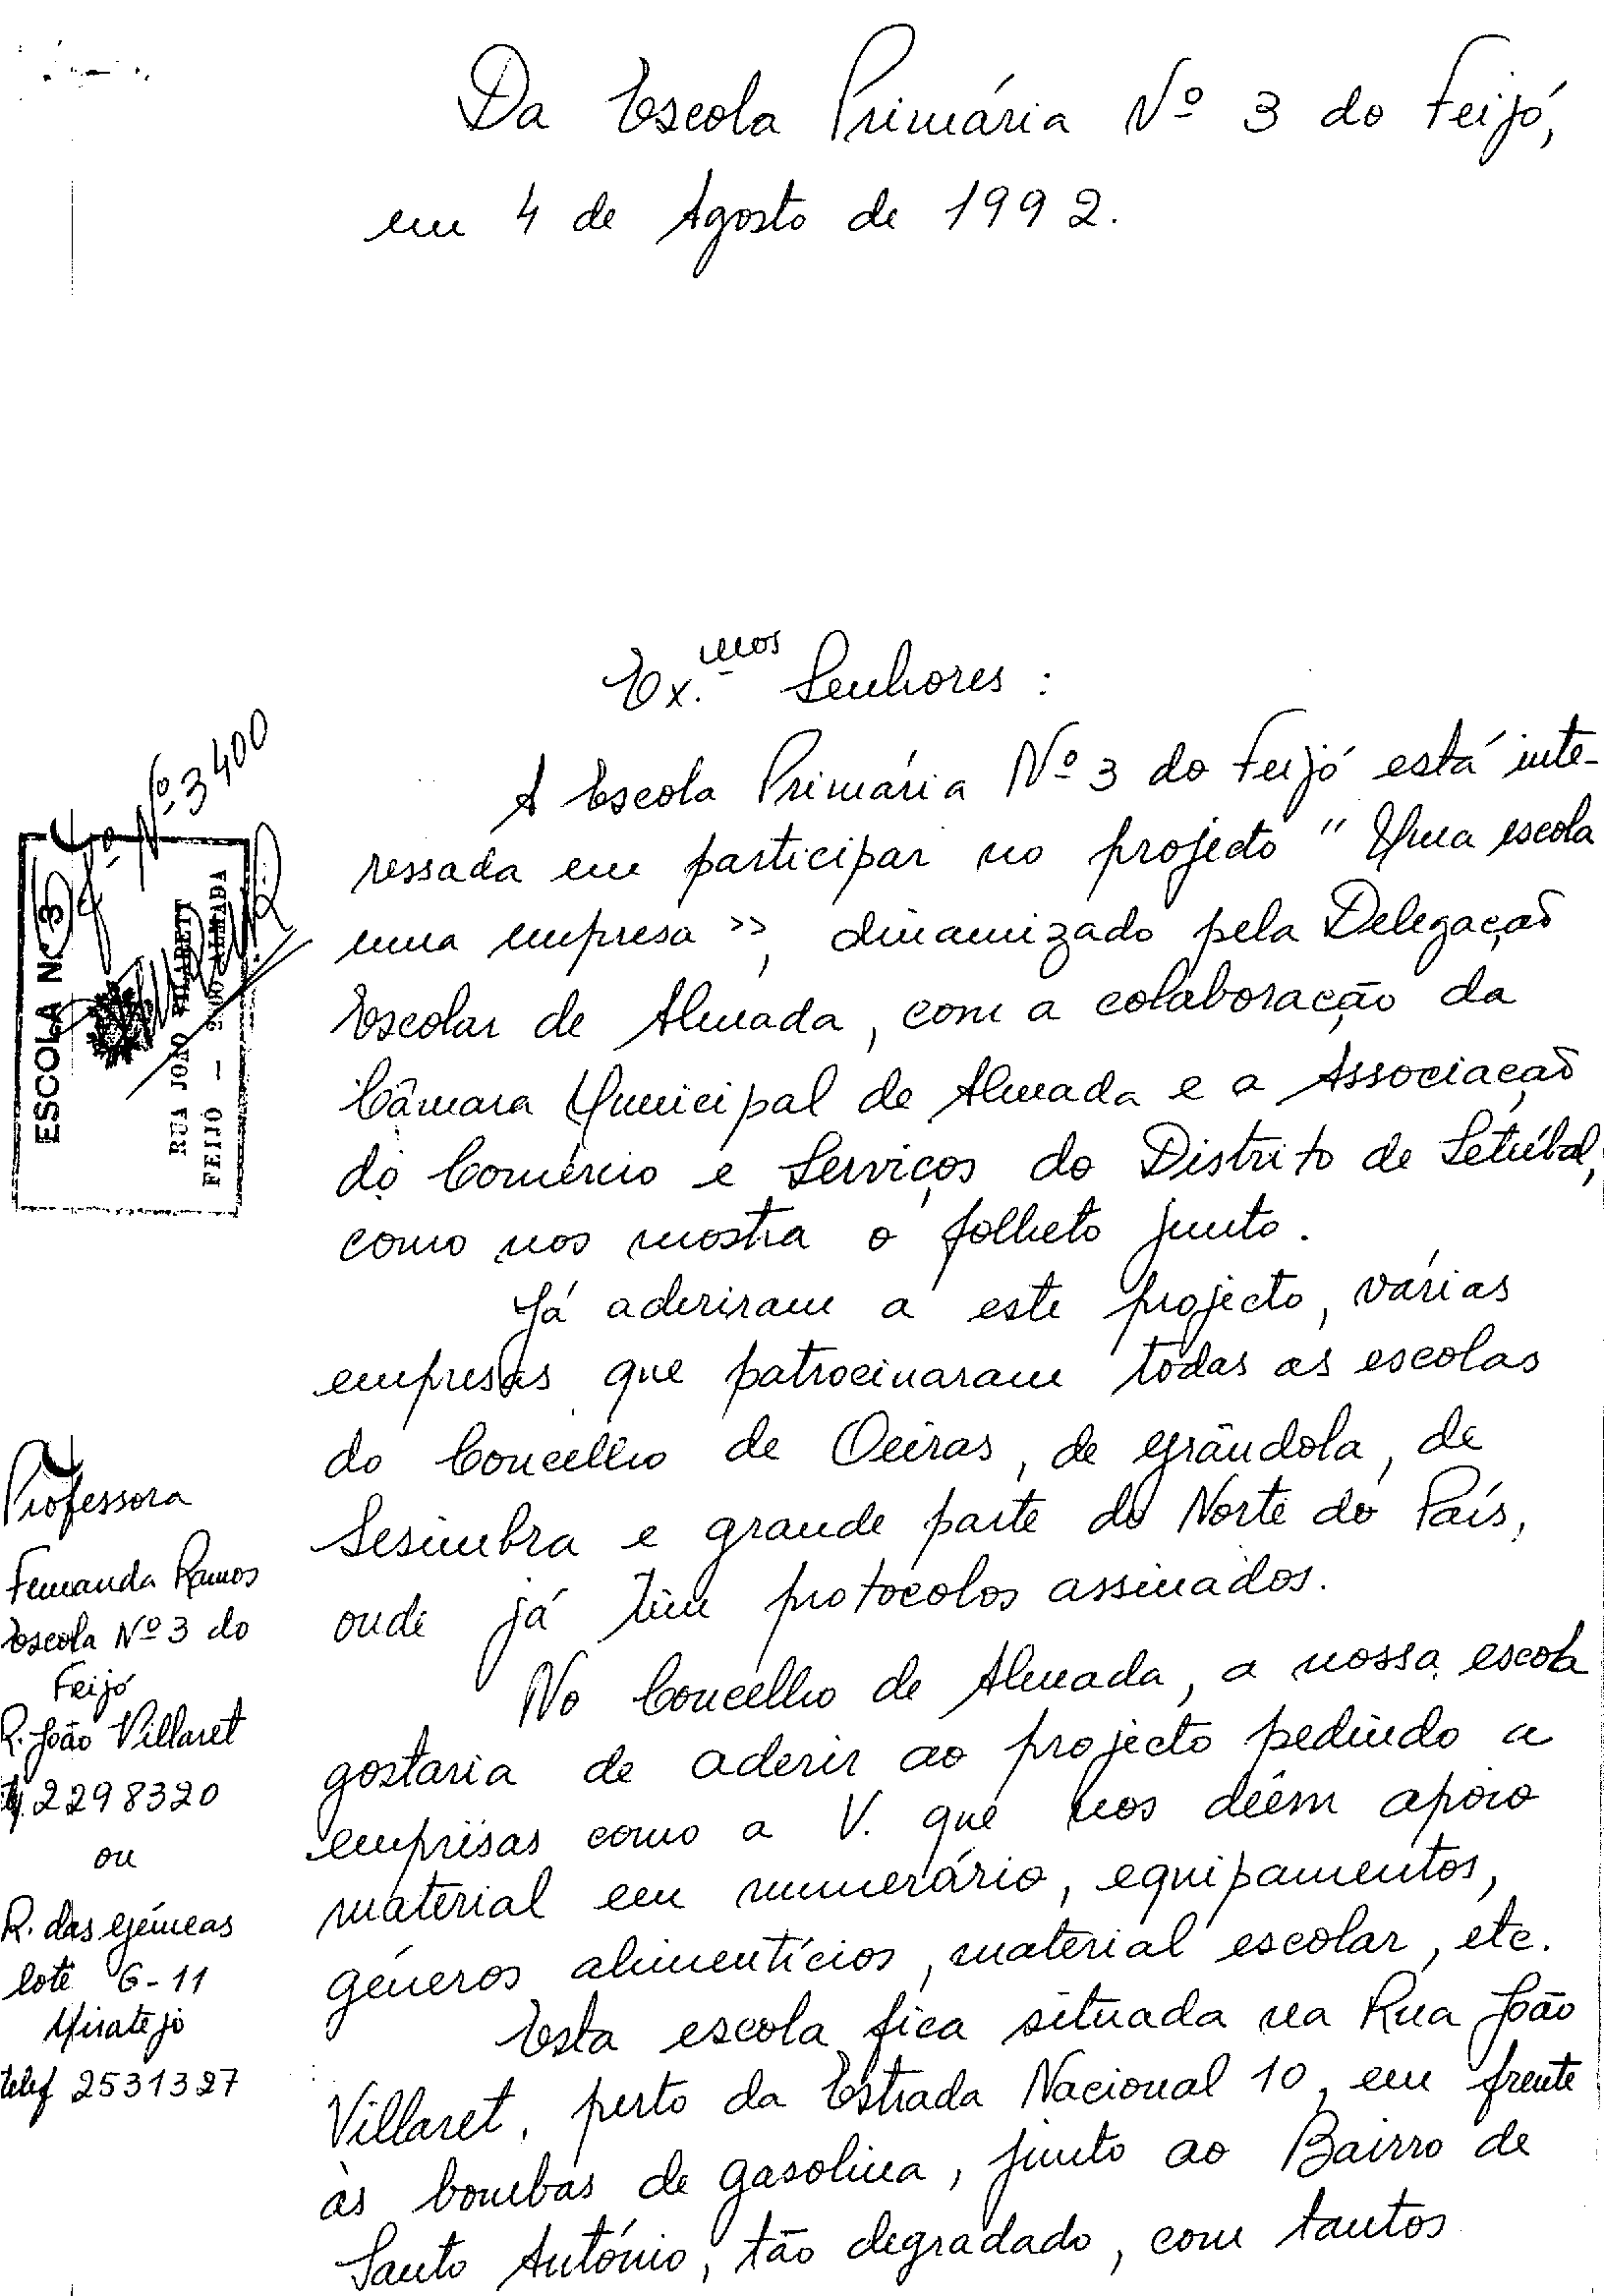 Da Escola Primária Nº 3 do Feijó,
em 4 de Agosto de 1992.
Ex.mos Senhores :
A Escola Primária Nº 3 do Feijó está inte-
ressada em participar no projecto " Uma escola
uma empresa >>, dinamizado pela Delegação
Escolar de Almada, com a colaboração da
Câmara Municipal de Almada e a Associação
do Comércio e Serviços do Distrito de Setúbal,
como nos mostra o folheto junto.
Já aderiram a este projecto, várias
empresas que patrocinaram todas as escolas
do Concelho de Oeiras, de Grândola, de
Sesimbra e grande parte do Norte do País,
onde já têm protocolos assinados.
No Concelho de Almada, a nossa escola
gostaria de aderir ao projecto pedindo a
empresas como a V. que nos dêem apoio
material em numerário, equipamentos,
géneros alimentícios, material escolar, etc.
Esta escola fica situada na Rua João
Villaret, perto da Estrada Nacional 10, em frente
às bombas de gasolina, junto ao Bairro de
Santo António, tão degradado, com tantos
Nº 3400
ESCOLA Nº 3
RUA JOÃO VILARETT
FEIJÓ - 2800 ALMADA
Professora
Fernanda Ramos
Escola Nº 3 do
Feijó
R. João Villaret
2298320
ou
R. das Gémeas
lote 6-11
Miratejo
telef 2531327